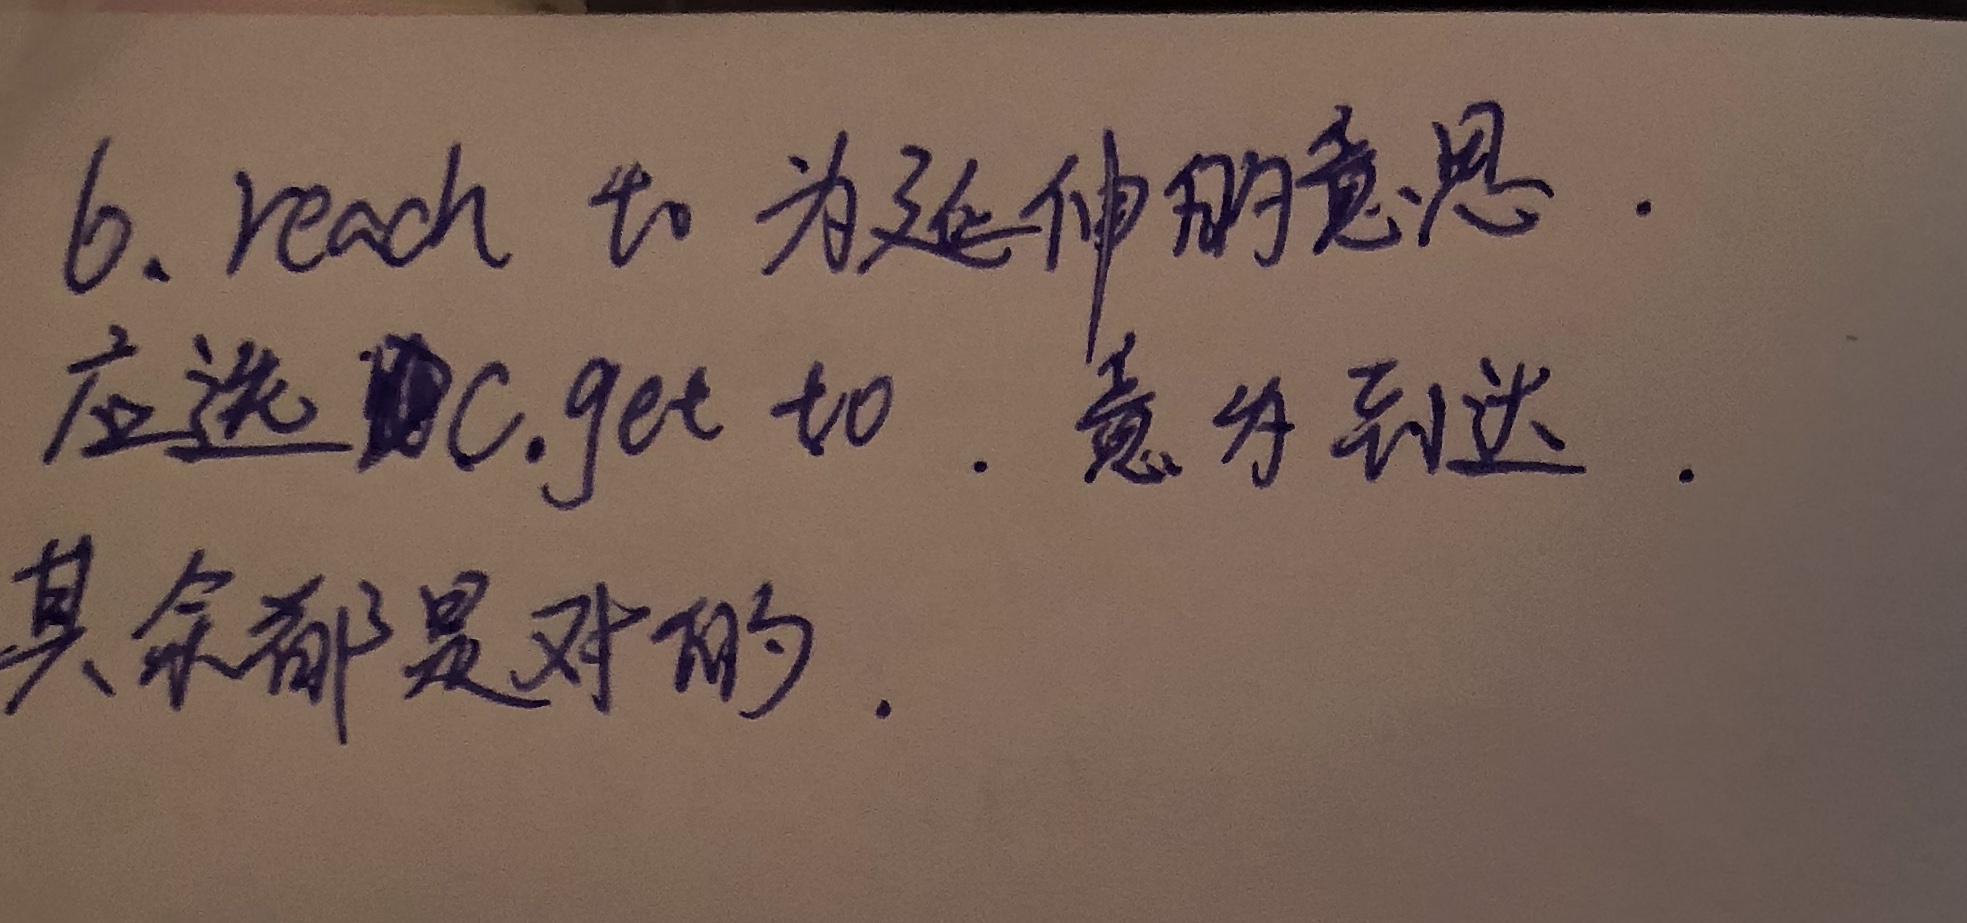 6. reach to 为延伸的意思.
应选 C.get to. 意为到达.
其余都是对的.